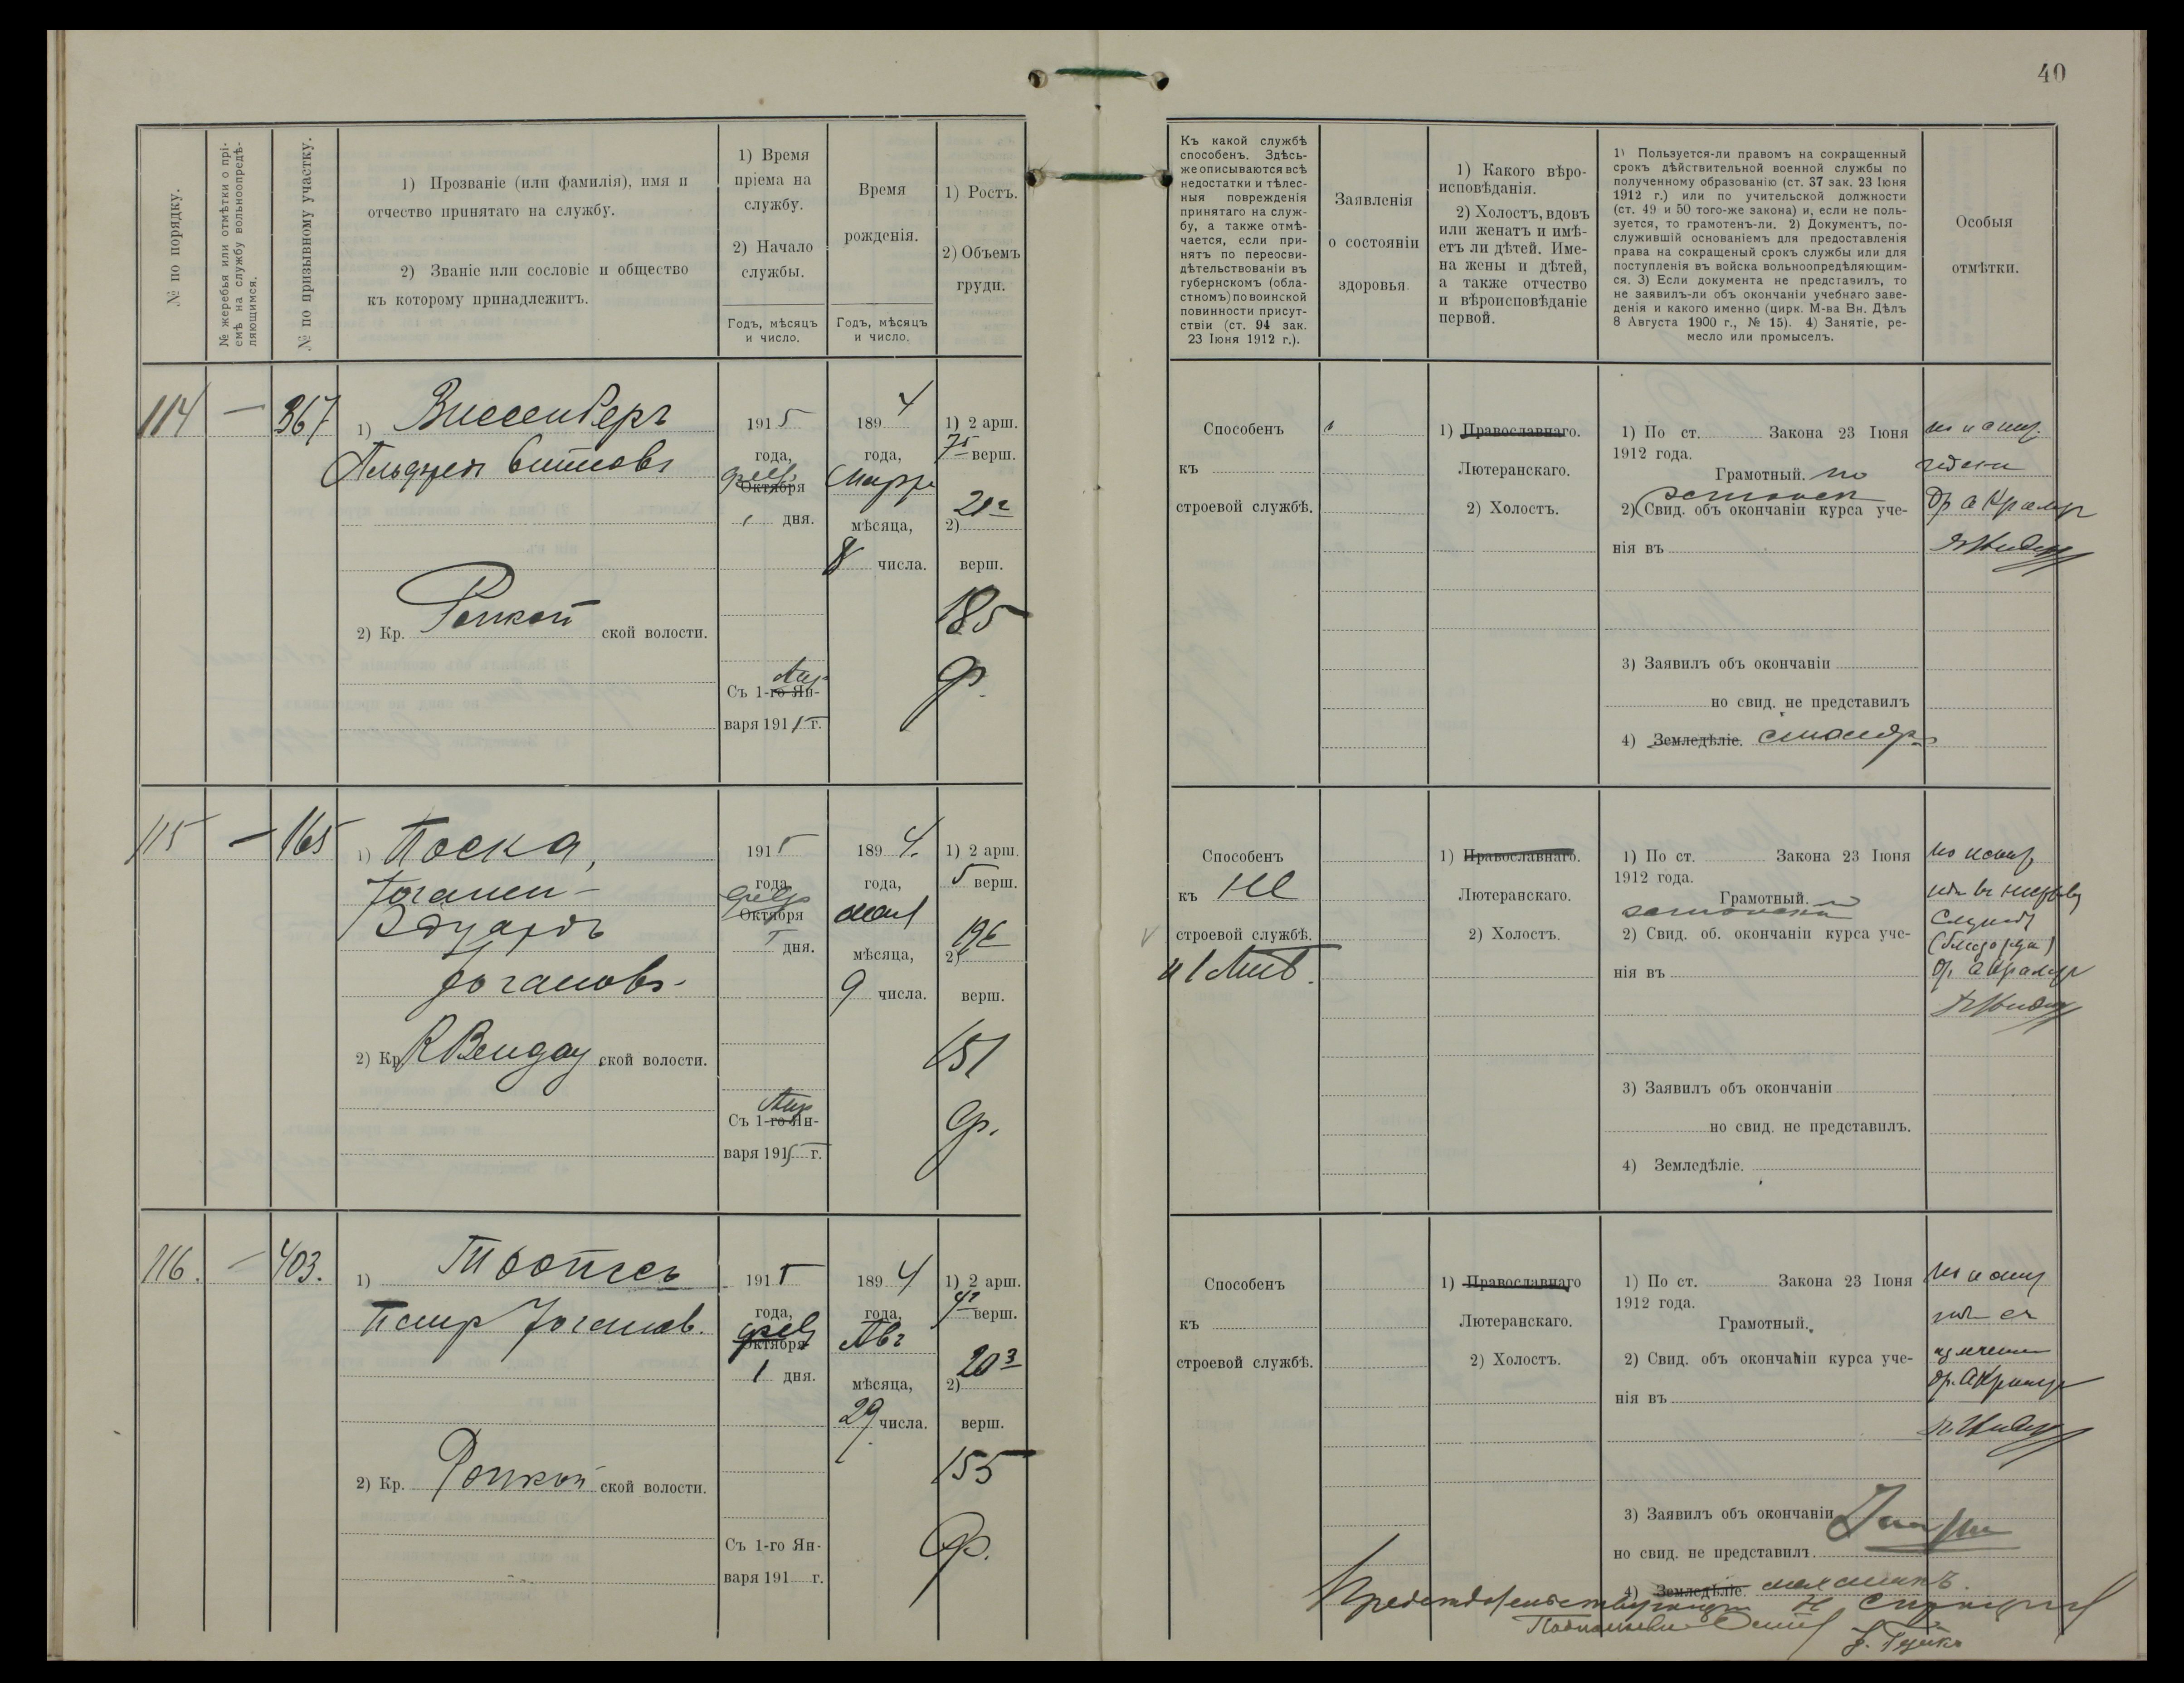 40
№ по порядку.
№ жеребья или отмѣтки о прі-
емѣ на службу вольноопредѣ-
ляющимся.
№ по призывному участку.
1) Прозваніе (или фамилія), имя и
отчество принятаго на службу.
2) Званіе или сословіе и общество
къ которому принадлежитъ.
1) Время
пріема на
службу.
2) Начало
службы.
Годъ, мѣсяцъ
и число.
Время
рожденія.
Годъ, мѣсяцъ
и число.
1) Ростъ.
2) Объемъ
груди.
Къ какой службѣ
способенъ. Здѣсь-
же описываются всѣ
недостатки и тѣлес-
ныя поврежденія
принятаго на служ-
бу, а также отмѣ-
чается, если при-
нятъ по переосви-
дѣтельствованіи въ
губернскомъ (обла-
стномъ) по воинской
повинности присут-
ствіи (ст. 94 зак.
23 Іюня 1912 г.).
Заявленія
о состояніи
здоровья.
1) Какого вѣро-
исповѣданія.
2) Холостъ, вдовъ
или женатъ и имѣ-
етъ ли дѣтей. Име-
на жены и дѣтей,
а также отчество
и вѣроисповѣданіе
первой.
1) Пользуется-ли правомъ на сокращенный
срокъ дѣйствительной военной службы по
полученному образованію (ст. 37 зак. 23 Іюня
1912 г.) или по учительской должности
(ст. 49 и 50 того-же закона) и, если не поль-
зуется, то грамотенъ-ли. 2) Документъ, по-
служившій основаніемъ для предоставленія
права на сокращеный срокъ службы или для
поступленія въ войска вольноопредѣляющим-
ся. 3) Если документа не представилъ, то
не заявилъ-ли объ окончаніи учебнаго заве-
денія и какого именно (цирк. М-ва Вн. Дѣлъ
8 Августа 1900 г., № 15). 4) Занятіе, ре-
месло или промыселъ.
Особыя
отмѣтки.
114 — 367
1) Виссенберг
2) Кр. Ропкой ской волости.
1915
года,
Октября
1 дня.
Съ 1-го Ян-
варя 1915 г.
1894
года,
Марта
мѣсяца,
8 числа.
1) 2 арш.
7 верш.
2)
верш.
185
Способенъ
къ
строевой службѣ.
1) Православнаго.
Лютеранскаго.
2) Холостъ.
1) По ст. Закона 23 Іюня
1912 года.
Грамотный. по
2) Свид. объ окончаніи курса уче-
нія въ
3) Заявилъ объ окончаніи
но свид. не представилъ
4) Земледѣліе. столяр
115 — 165
1) Поска,
Иоганнес-
Эдуардъ
Иогановъ
2) Кр. К Вендау ской волости.
1915
года,
Октября
1 дня.
Съ 1-го Ян-
варя 1915 г.
1894.
года,
мая
мѣсяца,
9 числа.
1) 2 арш.
5 верш.
2)
верш.
151
Способенъ
къ не
строевой службѣ.
1) Православнаго.
Лютеранскаго.
2) Холостъ.
1) По ст. Закона 23 Іюня
1912 года.
Грамотный.
эстонский
2) Свид. об. окончаніи курса уче-
нія въ
3) Заявилъ объ окончаніи
но свид. не представилъ.
4) Земледѣліе.
116. — 403.
1)
2) Кр. Ропкой ской волости.
1915
года,
Октября
1 дня.
Съ 1-го Ян-
варя 191 г.
1894
года,
Авг
мѣсяца,
29 числа.
1) 2 арш.
4 верш.
2) 20 3
верш.
155
Способенъ
къ
строевой службѣ.
1) Православнаго
Лютеранскаго.
2) Холостъ.
1) По ст. Закона 23 Іюня
1912 года.
Грамотный.
2) Свид. объ окончаніи курса уче-
нія въ
3) Заявилъ объ окончаніи
но свид. не представилъ.
4) Земледѣліе.